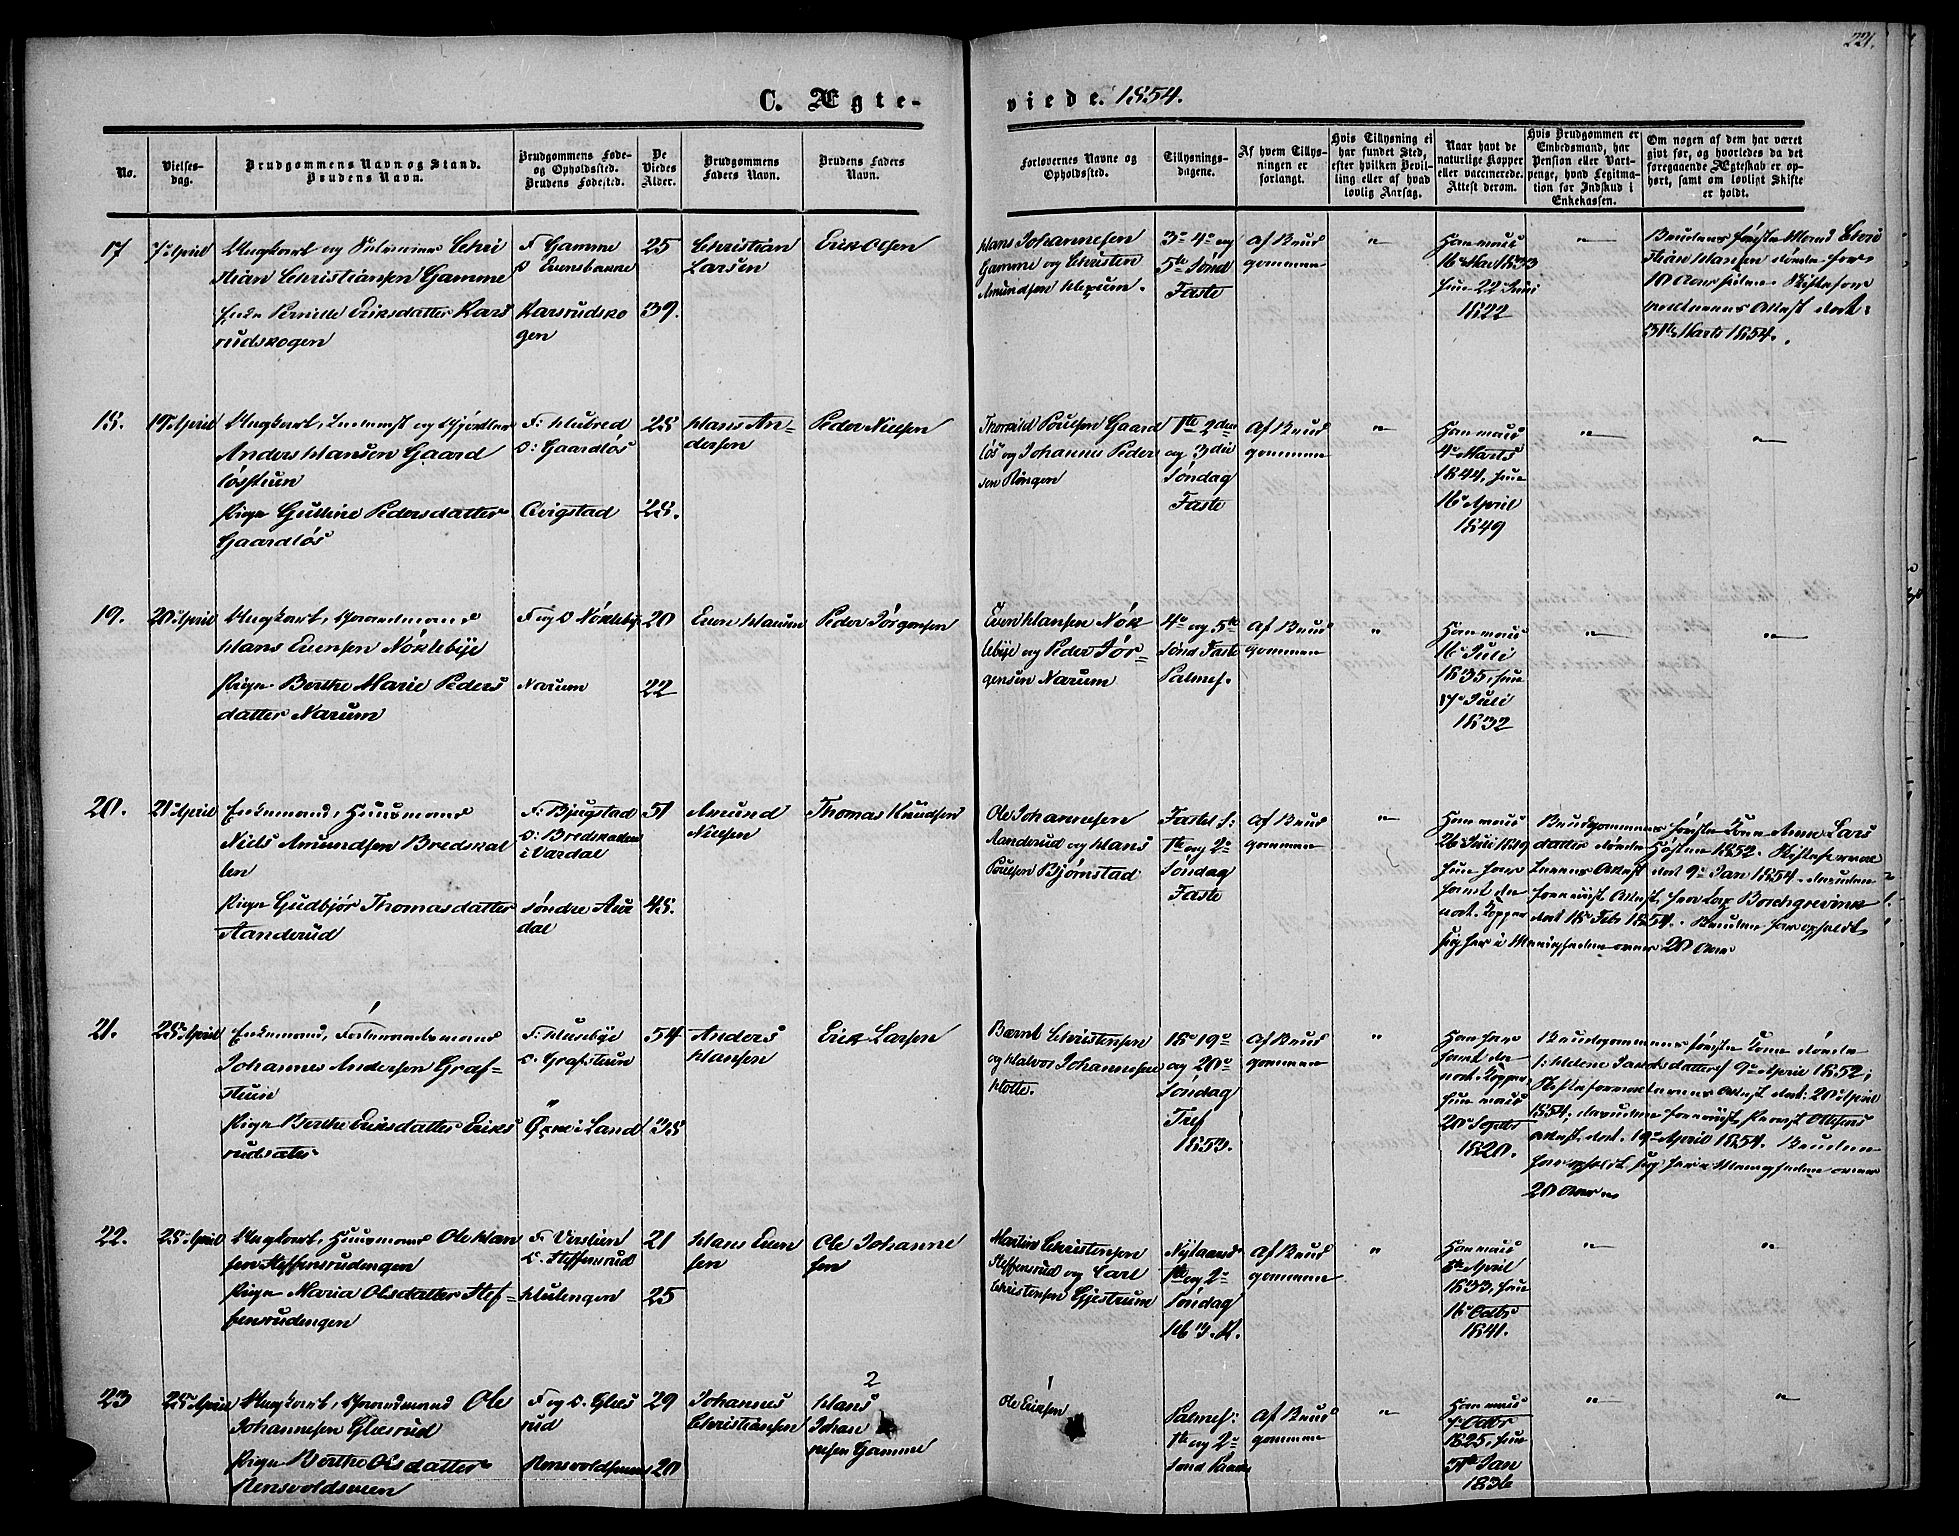 221.
C. Ægte-
viede. 1854.
No.
Vielses-
dag.
Brudgommens Navn og Stand.
Brudens Navn.
Brudgommens Føde-
og Opholdssted.
Brudens Fødested.
De
Viedes
Alder.
Brudgommens
Faders Navn.
Brudens Faders
Navn.
Forlovernes Navne og
Opholdssted.
Tillysnings-
dagene.
Af hvem Tillys-
ningen er
forlangt.
Hvis Tillysning ei
har fundet Sted,
efter hvilken Bevil-
ling eller af hvad
lovlig Aarsag.
Naar havt de
naturlige Kopper
eller vaccinerede.
Attest derom.
Hvis Brudgommen er
Embedsmand, har
Pension eller Vart-
penge, hvad Legitima-
tion for Indskud i
Enkekassen.
Om nogen af dem har været
gift før, og hvorledes da det
foregaaende Ægteskab er op-
hørt, samt om lovligt Skifte
er holdt.
17
7de April
Ungkarl og Chri
stian Christiansen Gamme
Enke Pernille Eriksdatter Kars
rudskogen
F Gamme
O Evensbakke
Karsrudsko
gen
25
39.
Christian
Larsen
Erik Olsen
Hans Johannesen
Gamme og Christen
Amundsen
3die 4de og
5te Sønd
Faste
af Brud
gommen
"
Ham vacc
16de Mai 1833
hun 22 Juni
1822
"
Brudens første Mand Chri
stian Hansen døde for
10 Aar siden. Skiftefor
valtnerens Attest dat:
31te Marts 1854.
18.
19de April
Ungkarl,
Anders Hansen Gaard
løsstuen
Pige Guttine Pedersdatter
Gaardløs
F: Hubred
O: Gaardløs
Qvigstad
28
28.
Hans An-
dersen
Peder Nielsen
Thorvild Poulsen Gaard
løs og Johannes Peder
sen Röngen
1ste 2den
og 3die
Søndag
Faste
af Brud
gommen
"
Ham vacc
4de Marts
1844, hun
16de April
1849
"
"
19.
20de April
Ungkarl, Gaardmand
Hans Evensen Nöklebye
Pige Berthe Marie Peders
datter Narum
F og O Nöklebye
Narum
20
22
Even Hansen
Peder Jörgensen
Even Hansen Nök
lebye og Peder Jör-
gensen Narum
4de og 5te
Sönd Faste
Palmes.
af Brud
gommen
"
Ham vacc
16de Juli
1835, hun
17de Juli
1832
"
"
20.
21de April
Enkemand, Huusmand
Niels Amundsen Bredskal
len
Pige Gudbjör Thomasdatter
Aanderud
F: Bjugstad
O: Bredskallen
i Vardal
søndre Aur
dal
51
48.
Amund
Nielsen
Thomas Knudsen
Ole Johannesen
Aanderud og Hans
Poulsen Bjömstad
Fastel S:
1ste og 2de
Søndag
Faste
af Brud
gommen
"
Ham vacc
26de Juli 1819
hun har
havt de
nat. Kopper
Brudgommens første Kone Anne Lars
datter døde Høsten 1852. Skifteforvalt
nerens Attest dat 9de Jan 1854. desuden
forevist Attest fra Borchgrevink
dat 18de Febr 1854. Bruden har opholdt
sig her i Menigheden over 20 Aar
21.
28de April
Enkemand,
Johannes Andersen Graf-
stuen
Pige Berthe Eriksdatter Eriks
rudsæter
F: Hunbye
O: Grafstuen
Øxne i Land
54
38
Anders
Hansen
Erik Larsen
Bernt Christensen
og Halvor Johannesen
Klotte.
18de 19de
og 20de
Søndag
Tref
1853.
af Brud
gommen
"
Ham har
havt de
nat. Kopper
hun vacc
20de Septbr
1820.
Brudgommens første Kone døde
(: Helene Jacobsdatter) 9de April 1852;
Skifteforvalterens Attest dat: 20de April
1854, desuden forevist Ottesens
attest dat. 19de April 1854. Bruden
har opholdt sig her i Menigheden over
20 Aar
22.
28de April
Ungkarl, Huusmand Ole Han
sen Steffensrudengen
Pige Maria Olsdatter Stef-
fensrudengen
F: Versteen
O. Steffensrud
Hulengen
21
25
Hans Even
sen
Ole Johanne
sen
Martin Christensen
Steffensrud og Carl
Christensen Gjestrum
Nytaarsd
1ste og 2de
Søndag
H 3. K.
af Brud
gommen
"
Ham vacc
8de April
1833, hun
16de Octbr
1841.
"
"
23
28de April
Ungkarl, Gaardmand Ole
Johannesen Glæsrud
Pige Berthe Olsdatter
Rensvoldsveen
F og O. Glæs
rud
29
20
Johannes
Christiansen
2
Hans
Johan
nesen Gamme
1
Ole Eriksen
Palmes:
1ste og 2de
Sønd Paaske
af Brud
gommen
"
Ham vacc
7de Octbr
1825, hun
31te Jan
1836
"
"